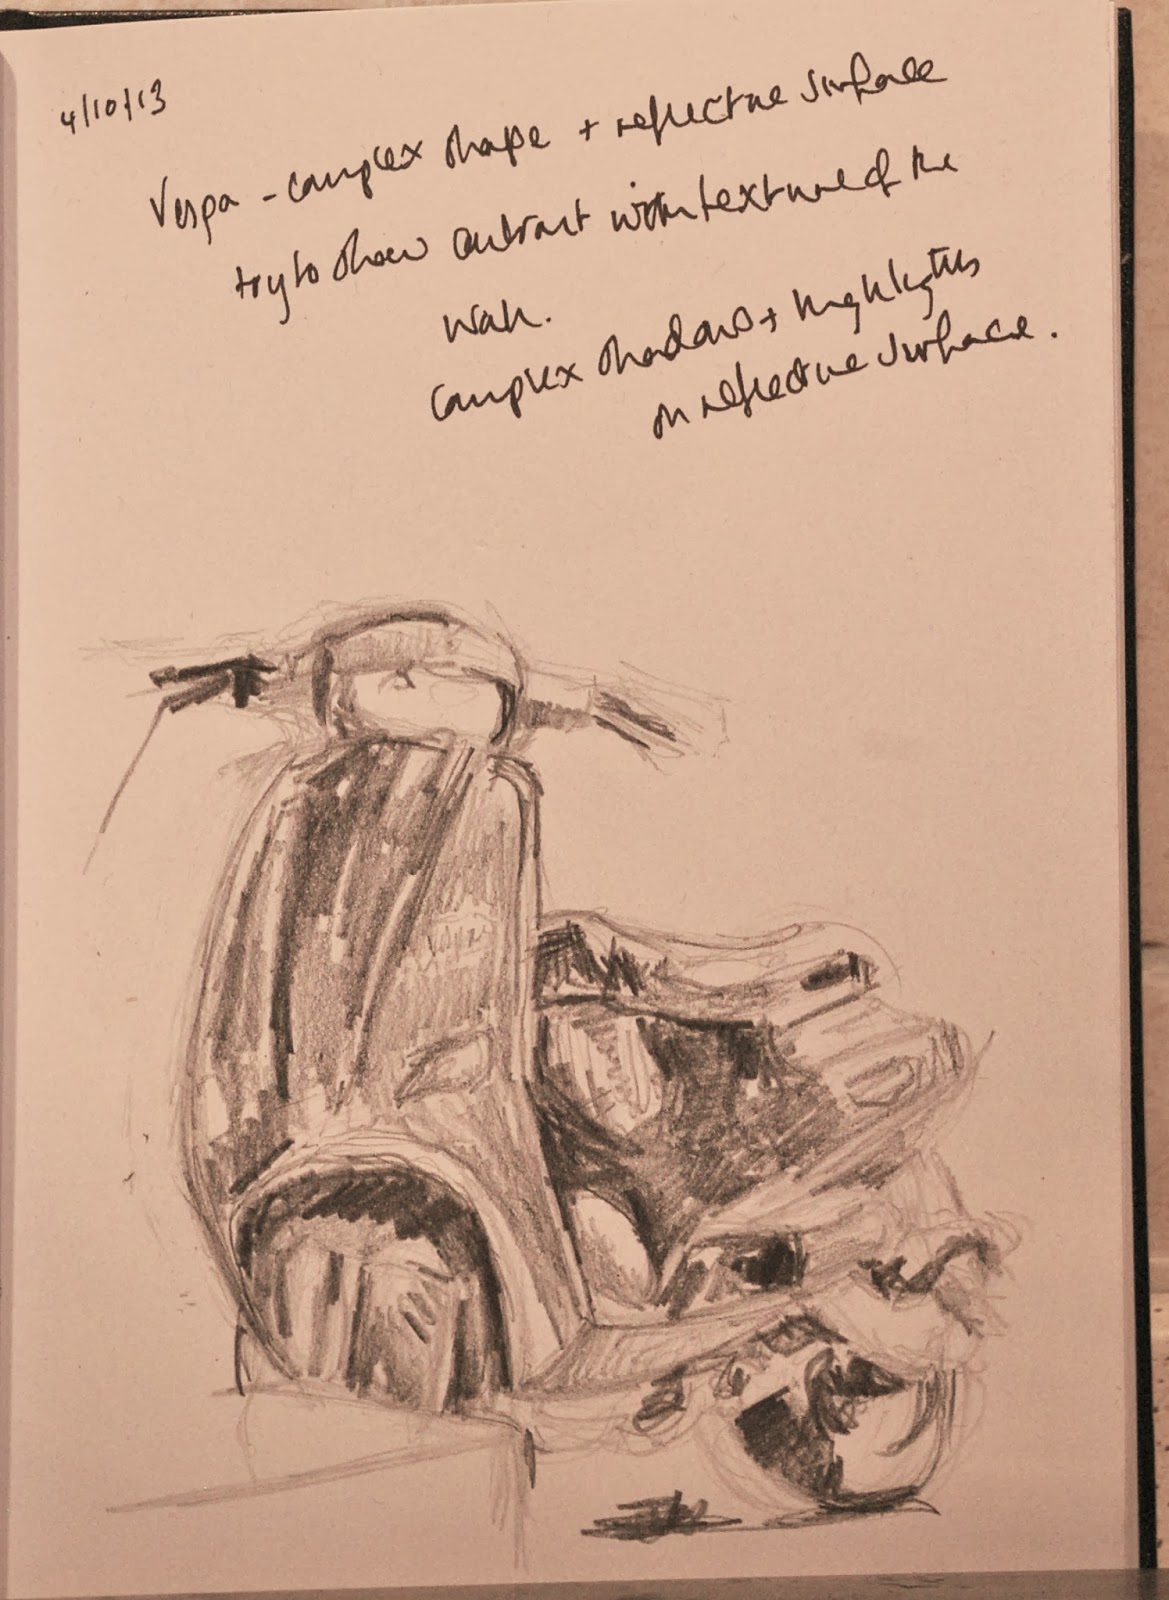 4/10/13
Vespa - complex shape + reflective surface
try to show contrast with texture of the
wall.
complex shadows + highlights
on reflective surface.